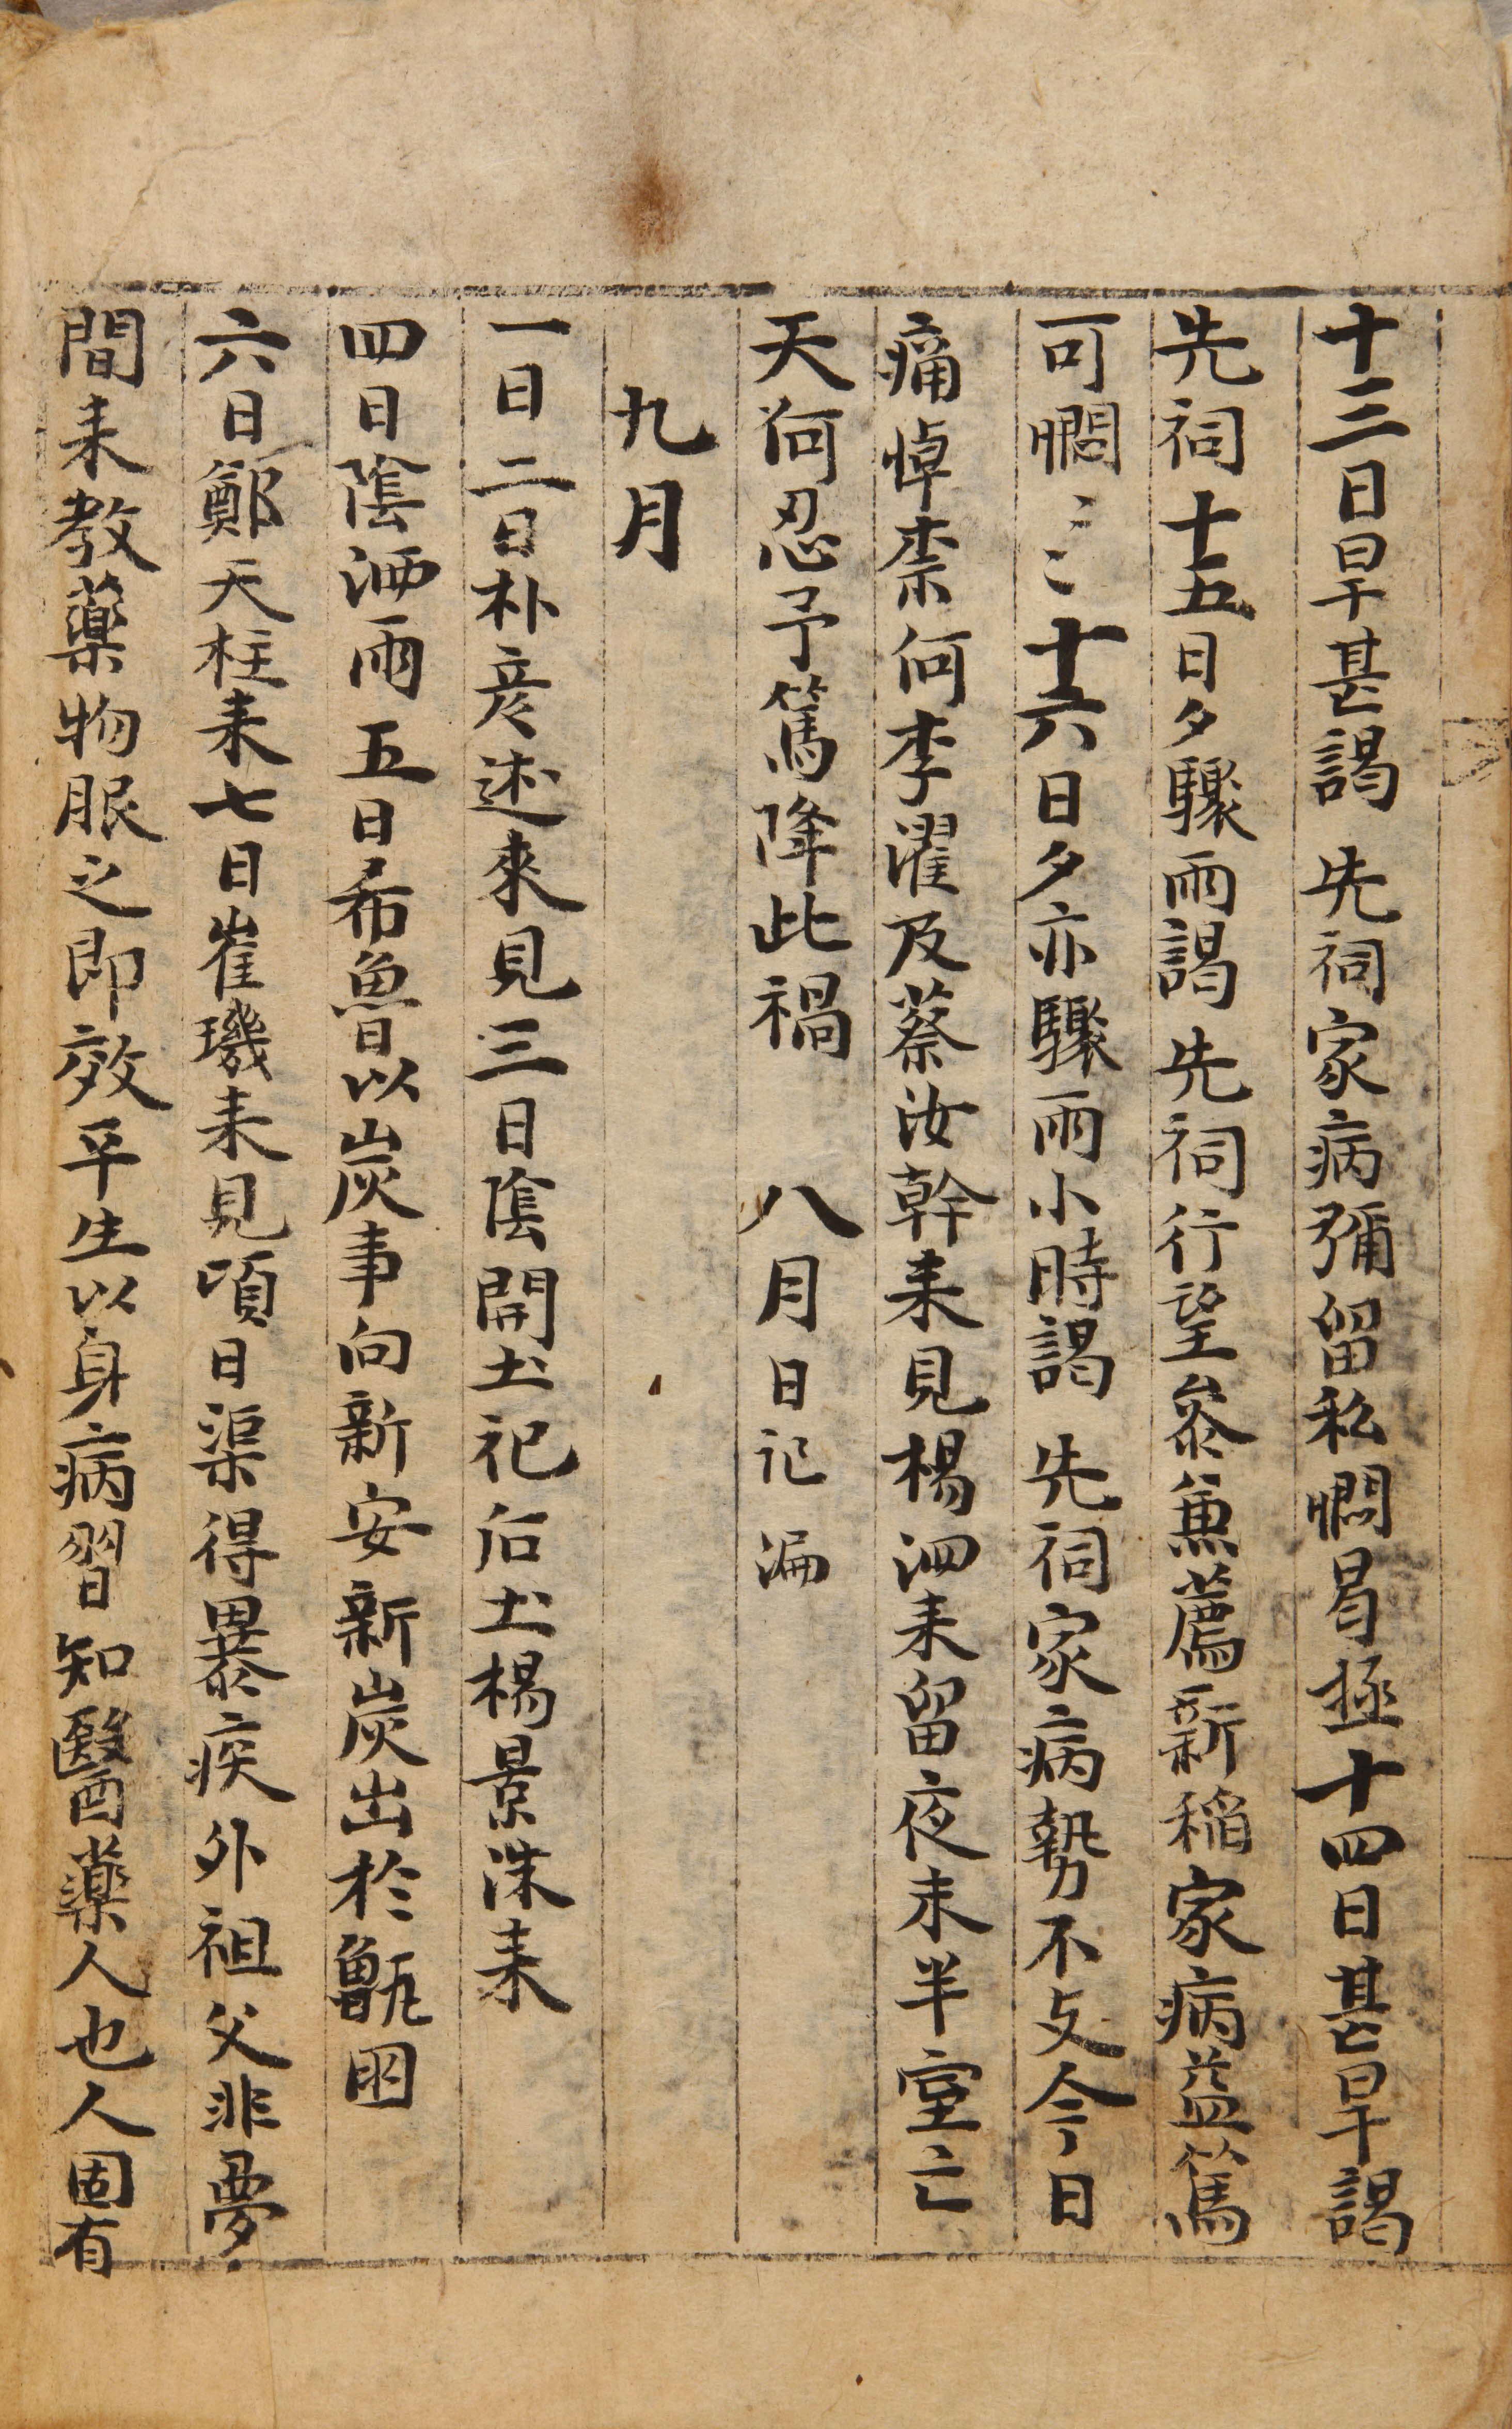 十三日旱甚謁 先祠家病彌留私憫曷極十四日甚旱謁
先祠十五日夕驟雨謁 先祠行望叅兼薦新稻家病益篤
可憫〻〻十六日夕亦驟雨小時謁 先祠家病勢不攴今日
痛悼柰何李濯及蔡汝幹来見楊泗来留夜未半室亡
天何忍予篤降此禍 八月日記漏
九月
一日二日朴彦述來見三日陰開土祀后土楊景洙来
四日陰洒雨五日希魯以炭事向新安新炭出於甑囦
六日鄭天柱来七日崔璣来見頃日渠得暴疾外祖父非夢
間来教藥物服之即效平生以身病習知醫藥人也人固有